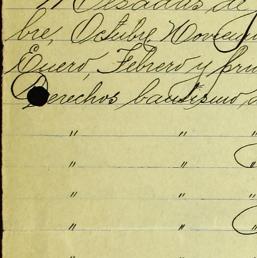 Mesadas de
bre, Octubre, Noviem
Enero, Febrero y prim
Derechos bautismo d
" "
" "
" "
" "